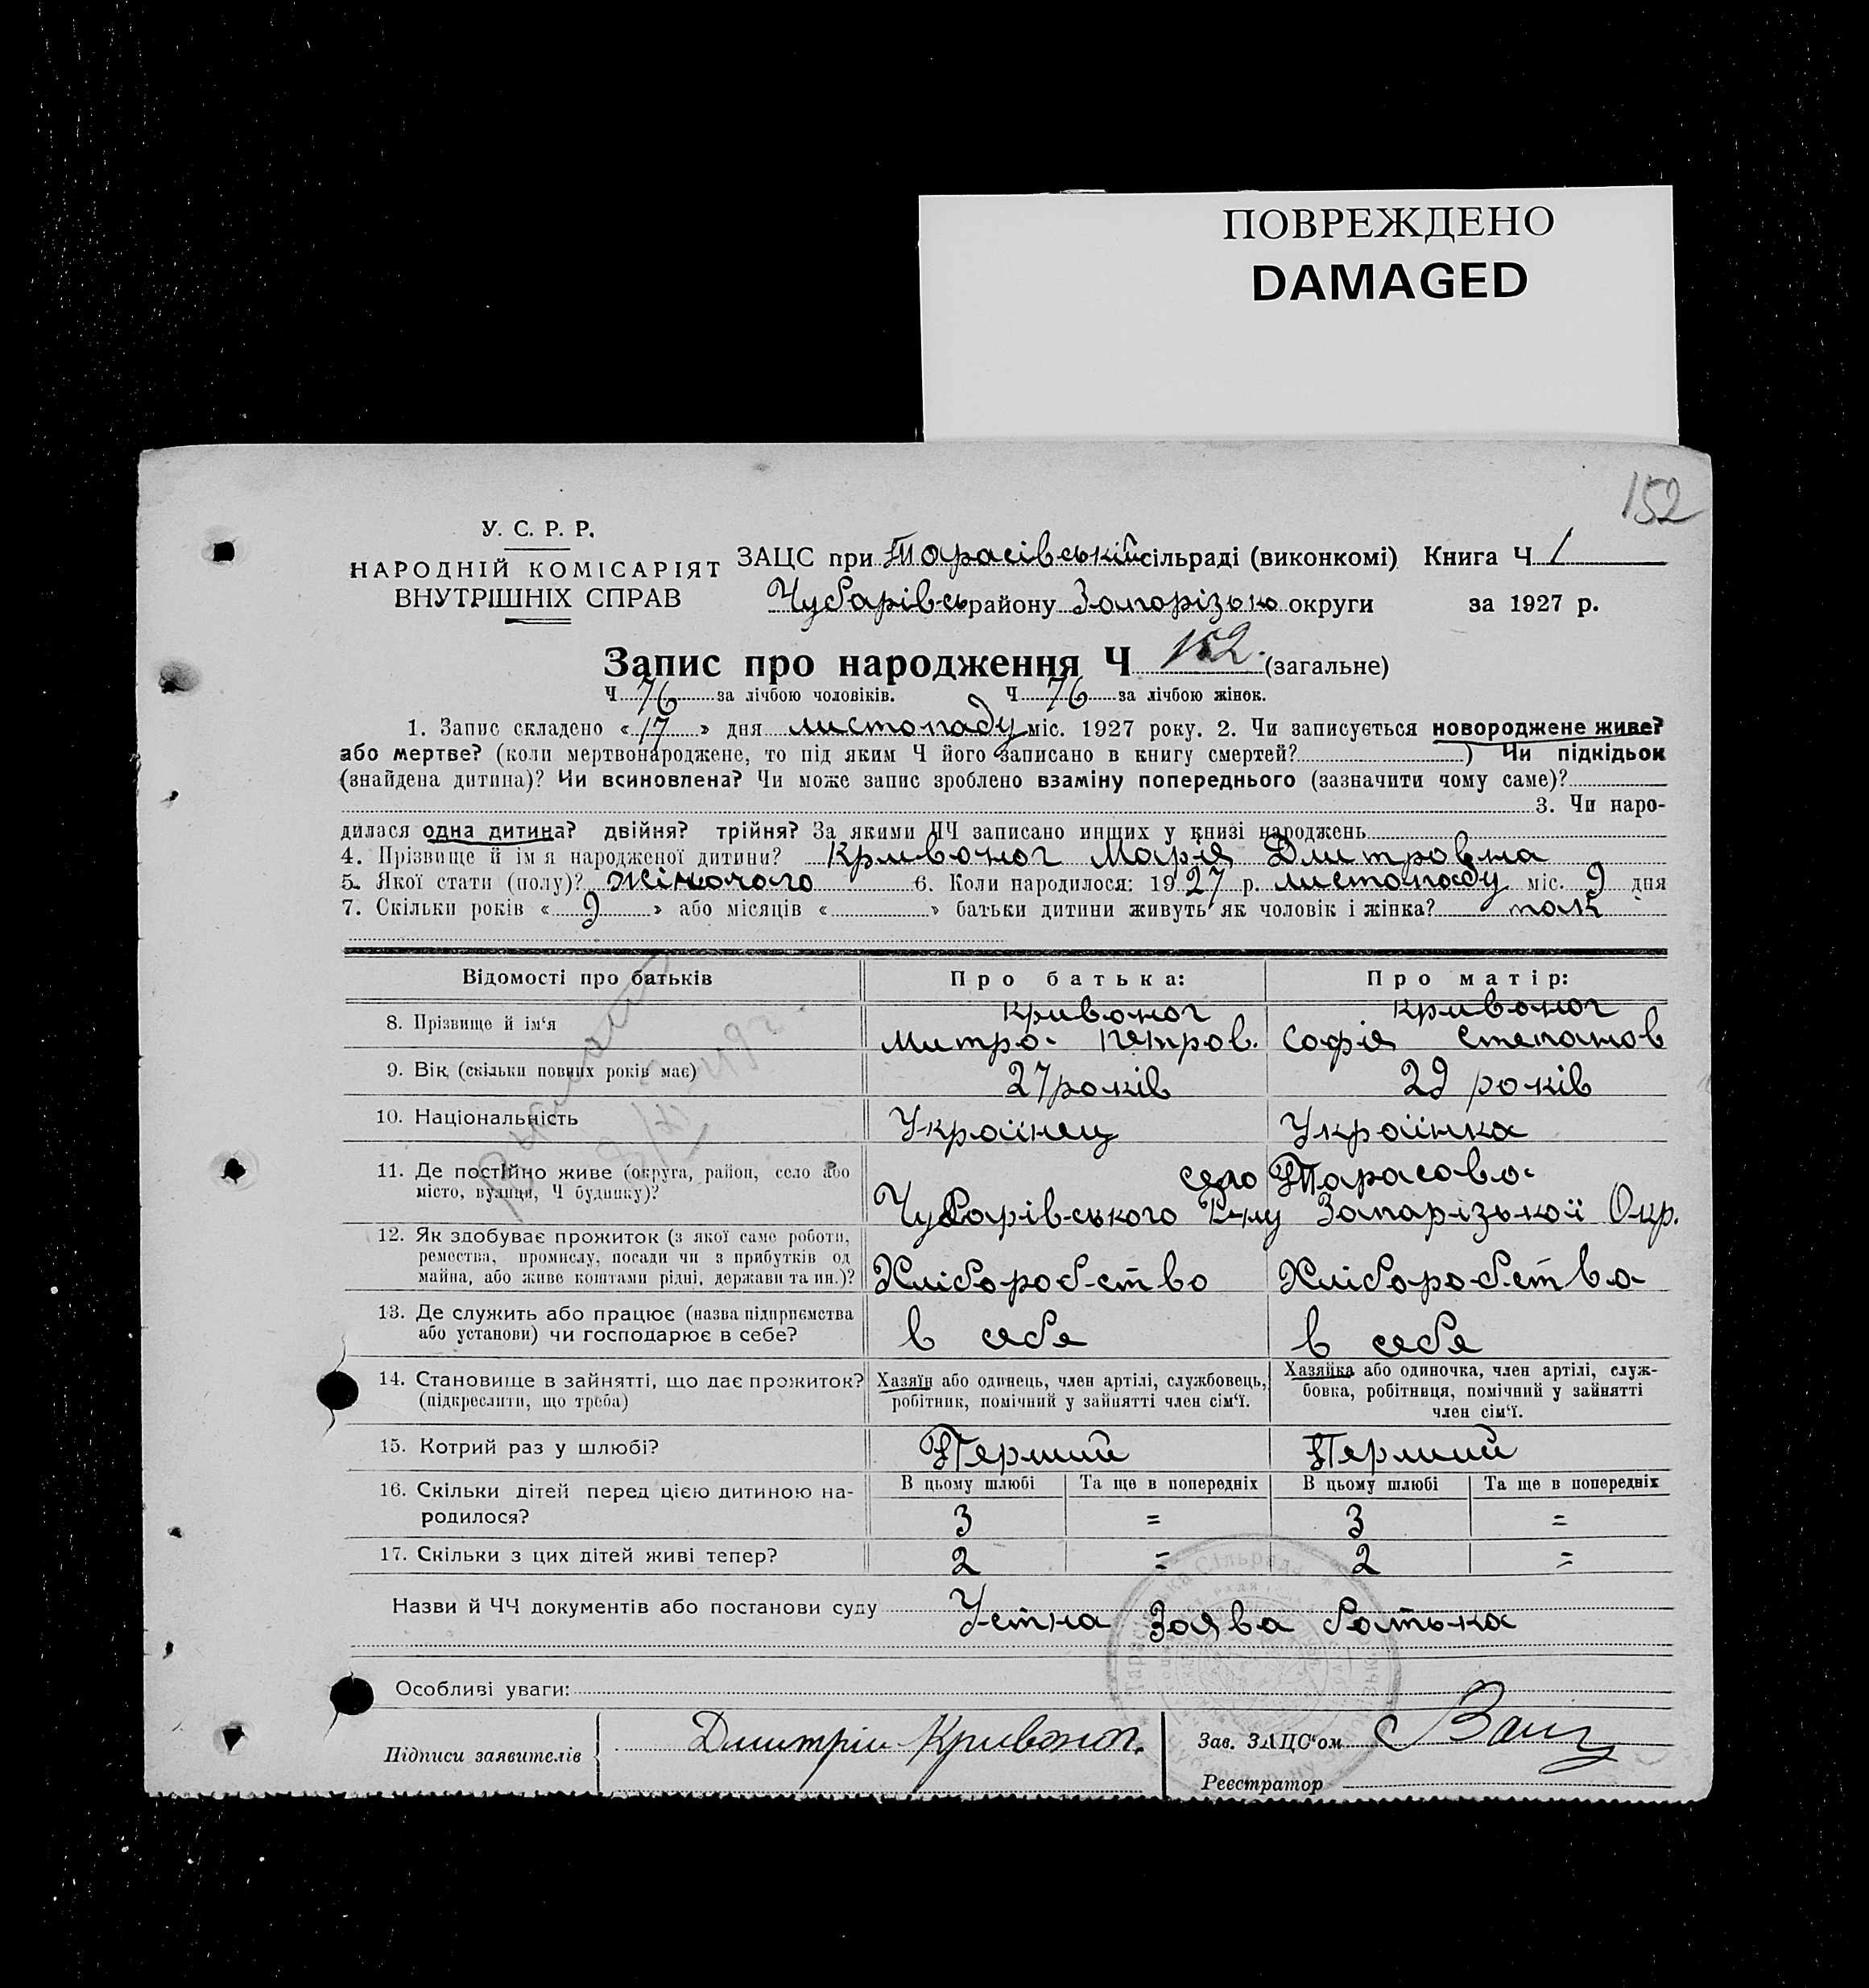 ПОВРЕЖДЕНО
DAMAGED
152
У. С. Р. Р.
НАРОДНІЙ КОМІСАРІЯТ
ВНУТРІШНІХ СПРАВ
ЗАЦС при Тарасівській сільраді (виконкомі) Книга Ч 1
Чубарівсь району Запорізько округи за 1927 р.
Запис про народження Ч 152. (загальне)
Ч 76 за лічбою чоловіків. Ч 76 за лічбою жінок.
1. Запис складено « 17 » дня листопаду міс. 1927 року. 2. Чи записується новороджене живе?
або мертве? (коли мертвонароджене, то під яким Ч його записано в книгу смертей? ) Чи підкідьок
(знайдена дитина)? Чи всиновлена? Чи може запис зроблено взаміну попереднього (зазначити чому саме)?
3. Чи наро-
дилася одна дитина? двійня? трійня? За якими ЧЧ записано инщих у книзі народжень
4. Прізвище й ім я народженої дитини? Кривоног Марія Дмитровна
5. Якої стати (полу)? Жіночого 6. Коли народилося: 19 27 р. листопаду міс. 9 дня
7. Скільки років « 9 » або місяців « » батьки дитини живуть як чоловік і жінка? так
Відомості про батьків Про батька: Про матір:
8. Прізвище й ім‘я Кривоног Митро. Петров. Кривоног Софія Степанов
9. Вік (скільки повних років має) 27 років 29 років
10. Національність Украінец Украінка
11. Де постійно живе (округа, район, село або
місто, вулиця, Ч будинку)? село Тарасовка
Чубарівського Р-ну Запарізькой Окр.
12. Як здобуває прожиток (з якої саме роботи,
ремества, промислу, посади чи з прибутків од
майна, або живе коштами рідні, держави та ин.)? Хліборобство Хліборобство
13. Де служить або працює (назва підприємства
або установи) чи господарює в себе? в себе в себе
14. Становище в зайнятті, що дає прожиток?
(підкреслити, що треба)
Хазяїн або одинець, член артілі, службовець,
робітник, помічний у зайнятті член сім‘ї.
Хазяйка або одиночка, член артілі, служ-
бовка, робітниця, помічний у зайнятті
член сім‘ї.
15. Котрий раз у шлюбі? Перший Перший
В цьому шлюбі Та ще в попередніх В цьому шлюбі Та ще в попередніх
16. Скільки дітей перед цією дитиною на-
родилося? 3 = 3 =
17. Скільки з цих дітей живі тепер? 2 = 2 =
Назви й ЧЧ документів або постанови суду Устна Заява батька
Особливі уваги:
Підписи заявителів Дмитрій Кривоног.
Зав. ЗАЦС‘ом
Реєстратор